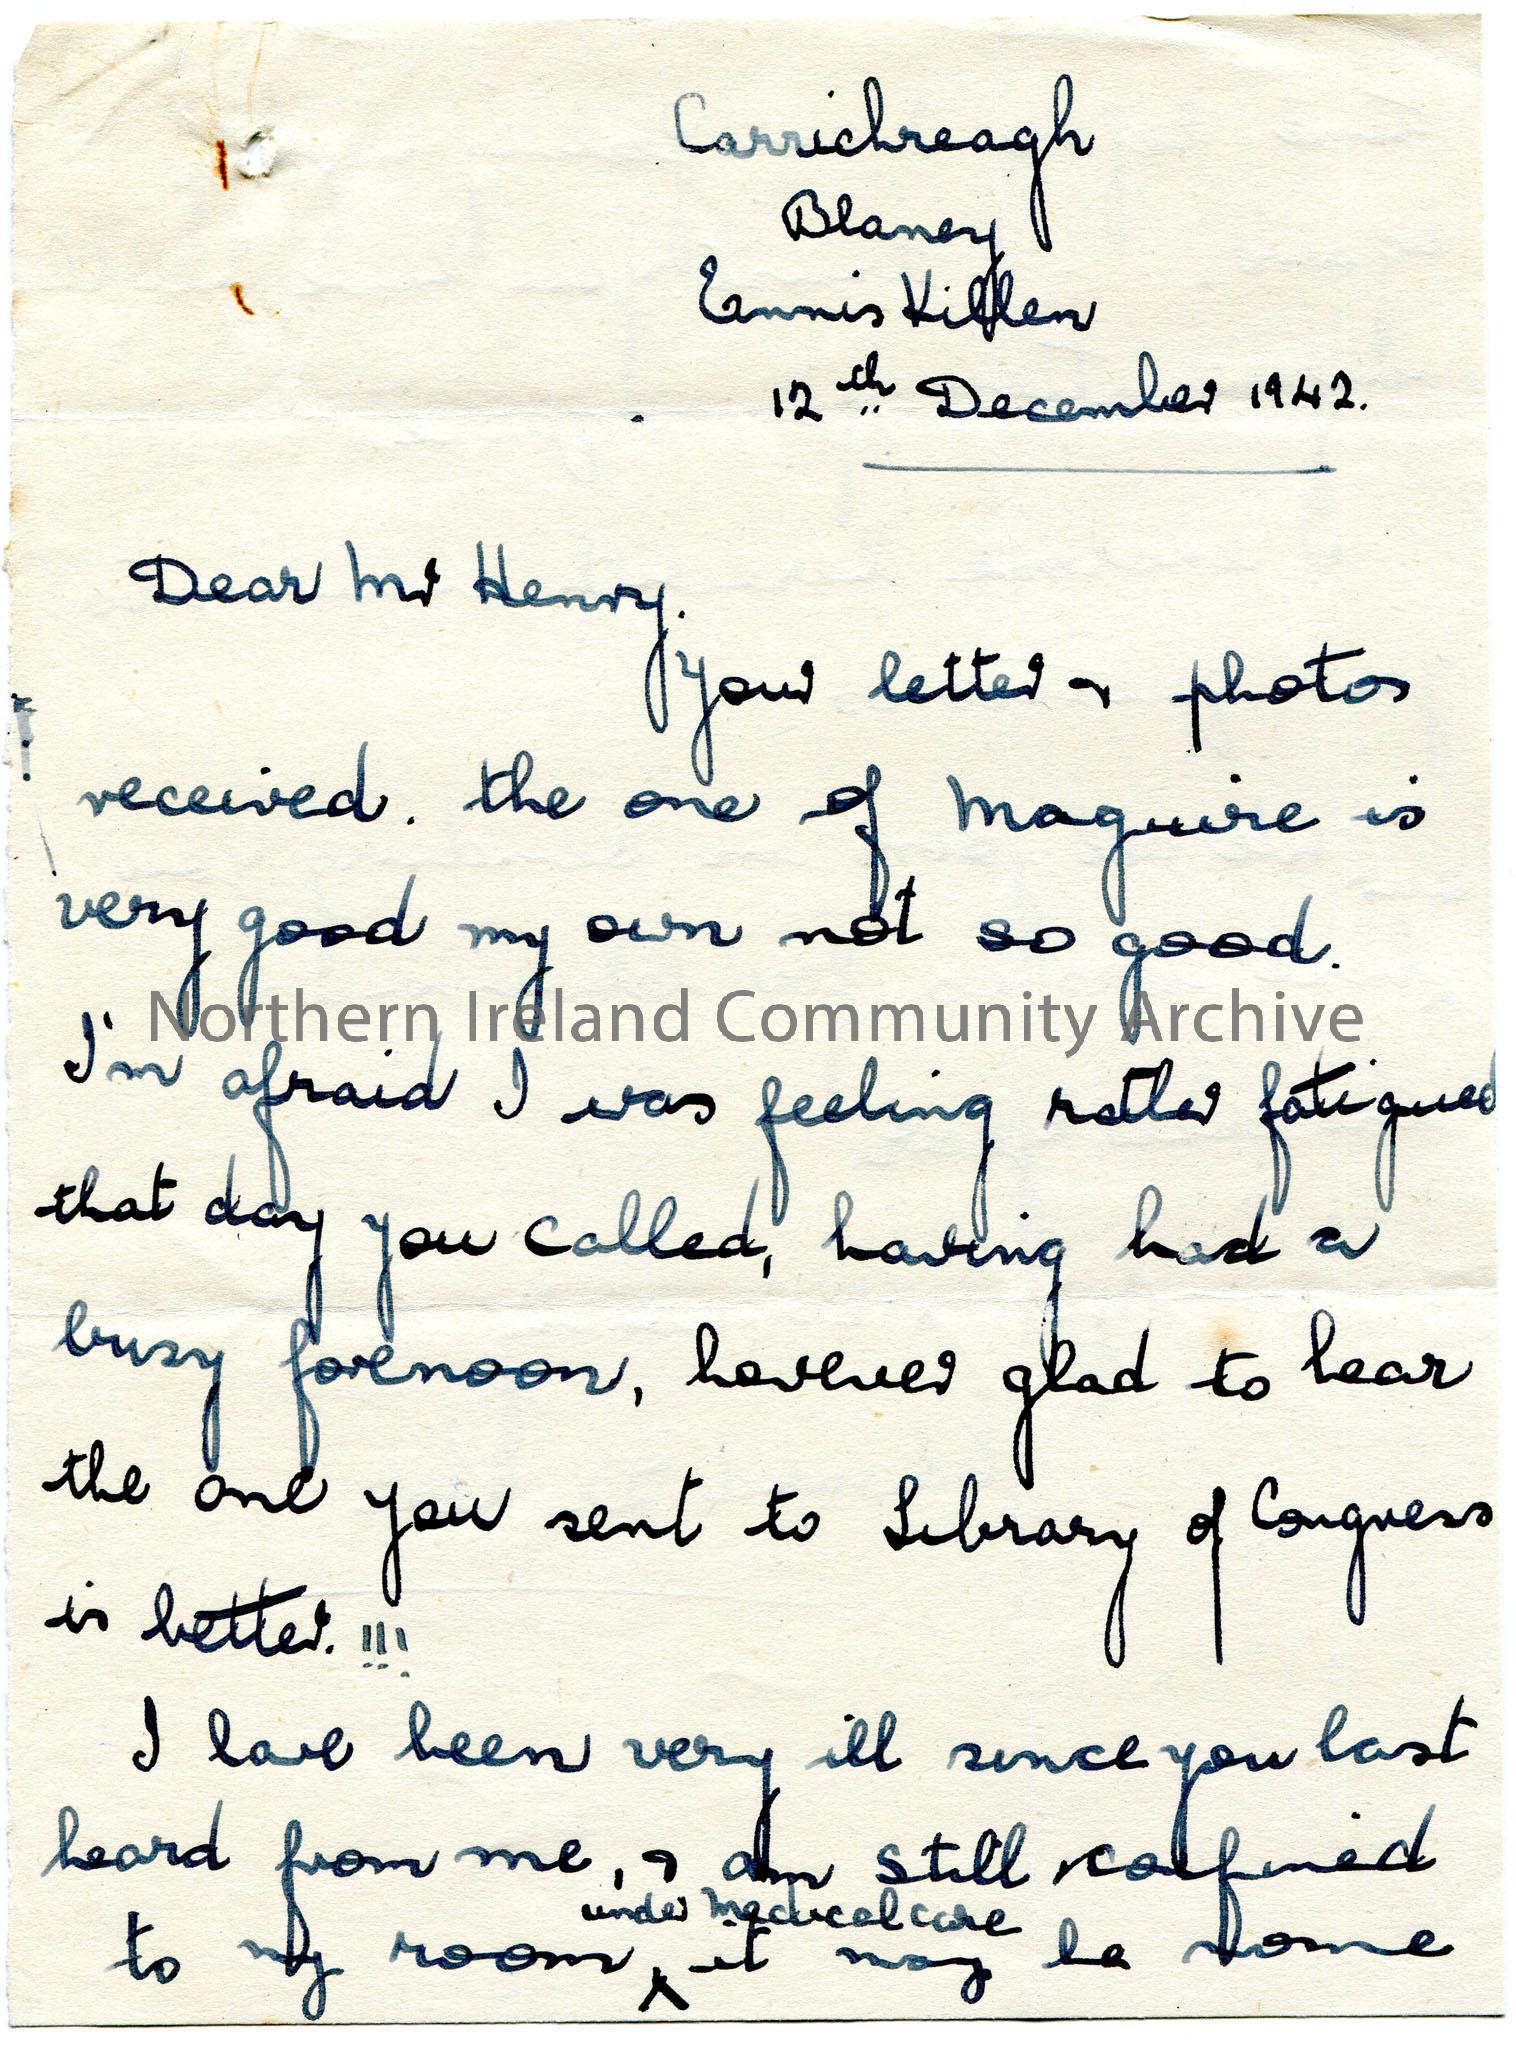 Carrickreagh
Blaney
Enniskillen
12th December 1942.
Dear Mr Henry.
Your letter & photos
received. the one of Maguire is
very good my own not so good.
Northern Ireland Community Archive
I'm afraid I was feeling rather fatigued
that day you called, having had a
busy forenoon, however glad to hear
the one you sent to Library of Congress
is better.!!!
I have been very ill since you last
heard from me, & am still confined
under medical care
to my room, it may be some